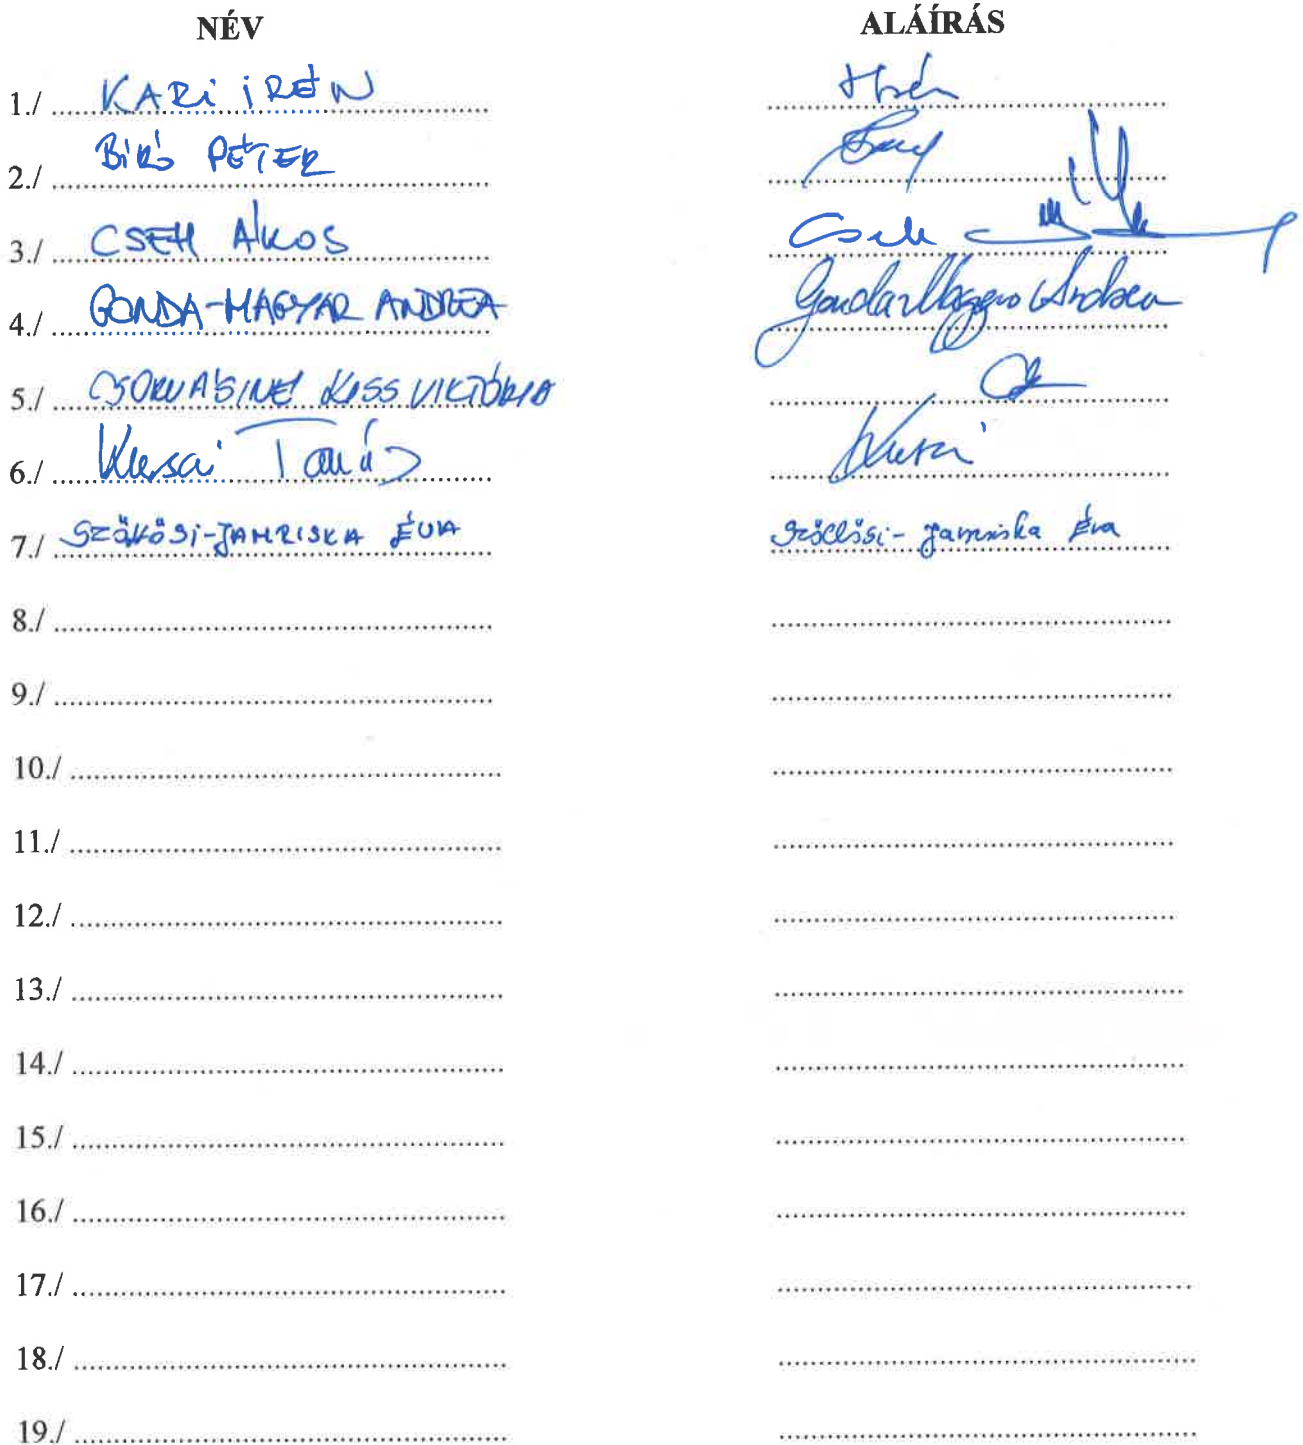 NÉV ALÁÍRÁS
1./ KARI IRÉN
2./ BIRÓ PÉTER
3./ CSEH ÁKOS Cseh
4./ GONDA-MAGYAR ANDREA Gonda-Magyar Andrea
5./ KISS VIKTÓRIA
6./ Tamás
7./ JAMRISKA ÉVA Jamriska Éva
8./
9./
10./
11./
12./
13./
14./
15./
16./
17./
18./
19./